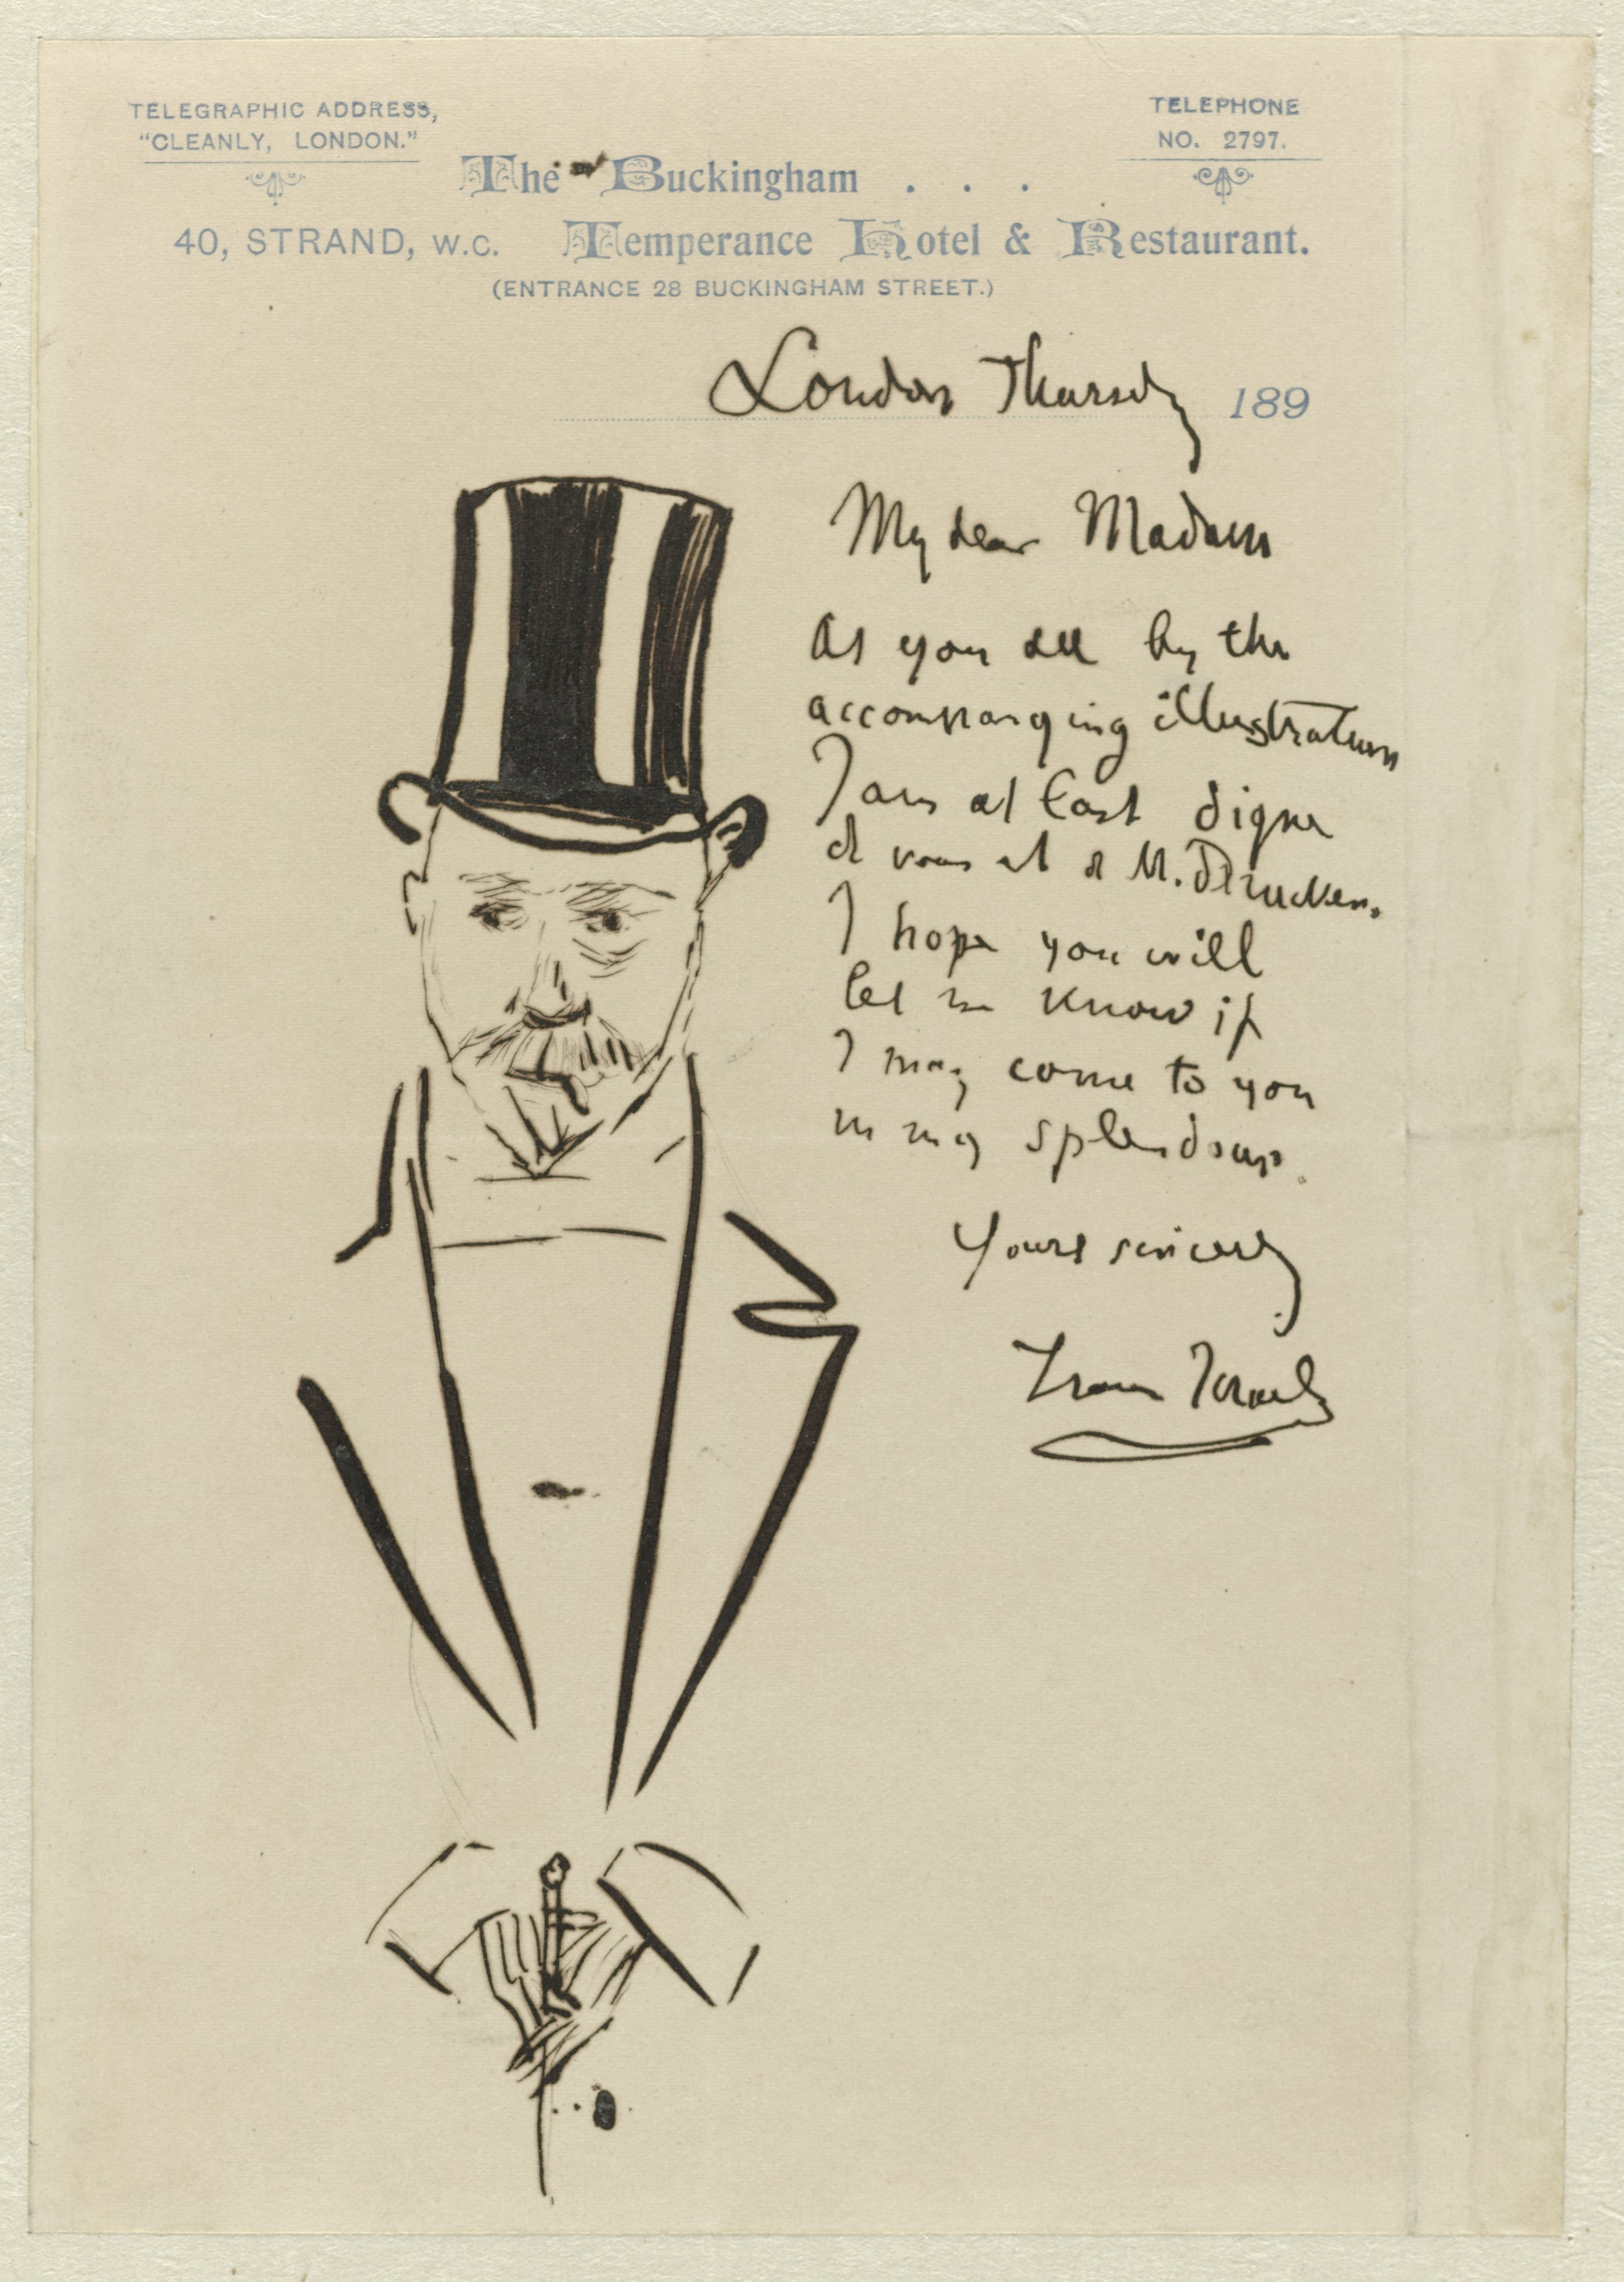 TELEGRAPHIC ADDRESS,
"CLEANLY, LONDON."
TELEPHONE
NO. 2797.
The Buckingham . . .
40, STRAND, W.C. Temperance Hotel & Restaurant.
(ENTRANCE 28 BUCKINGHAM STREET.)
London Thursday 189
My dear Madam
As you see by the
accompanying illustration
I am at last digne
de vous et de M. Drucker.
I hope you will
let me know if
I may come to you
in my splendour.
Yours sincerely
Isaac Israels